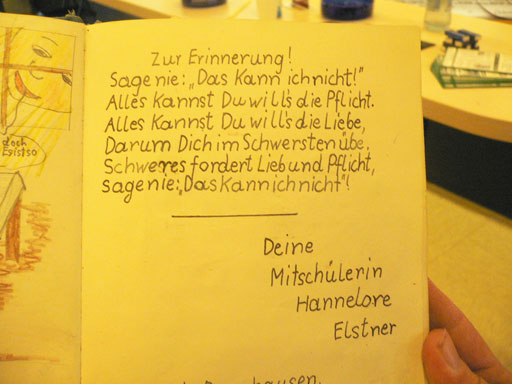 Zur Erinnerung!
Sage nie: „Das Kann ich nicht!"
Alles Kannst Du will's die Pflicht.
Alles Kannst Du will's die Liebe,
Darum Dich im Schwersten übe.
Schweres fordert Lieb und Pflicht,
sage nie: „Das Kann ich nicht"!
Deine
Mitschülerin
Hannelore
Elstner
doch
Es ist so